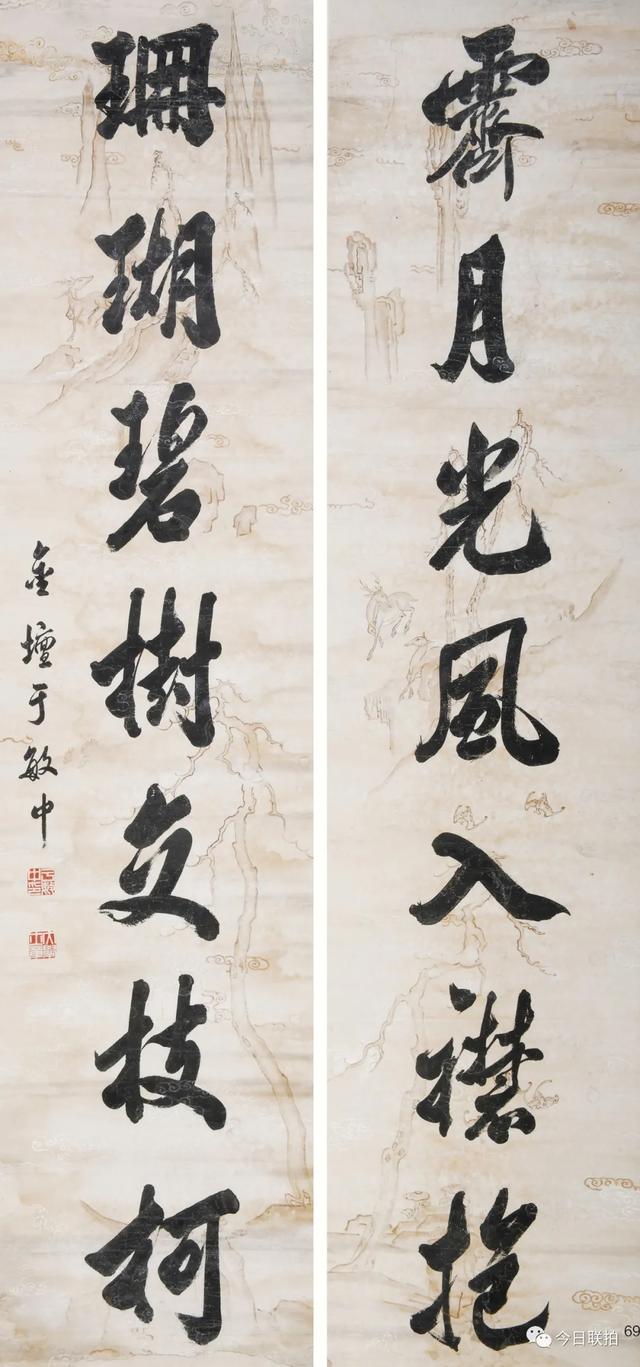 霽月光風入襟抱
珊瑚碧樹立枝柯
金壇于敏中
今日联拍
69